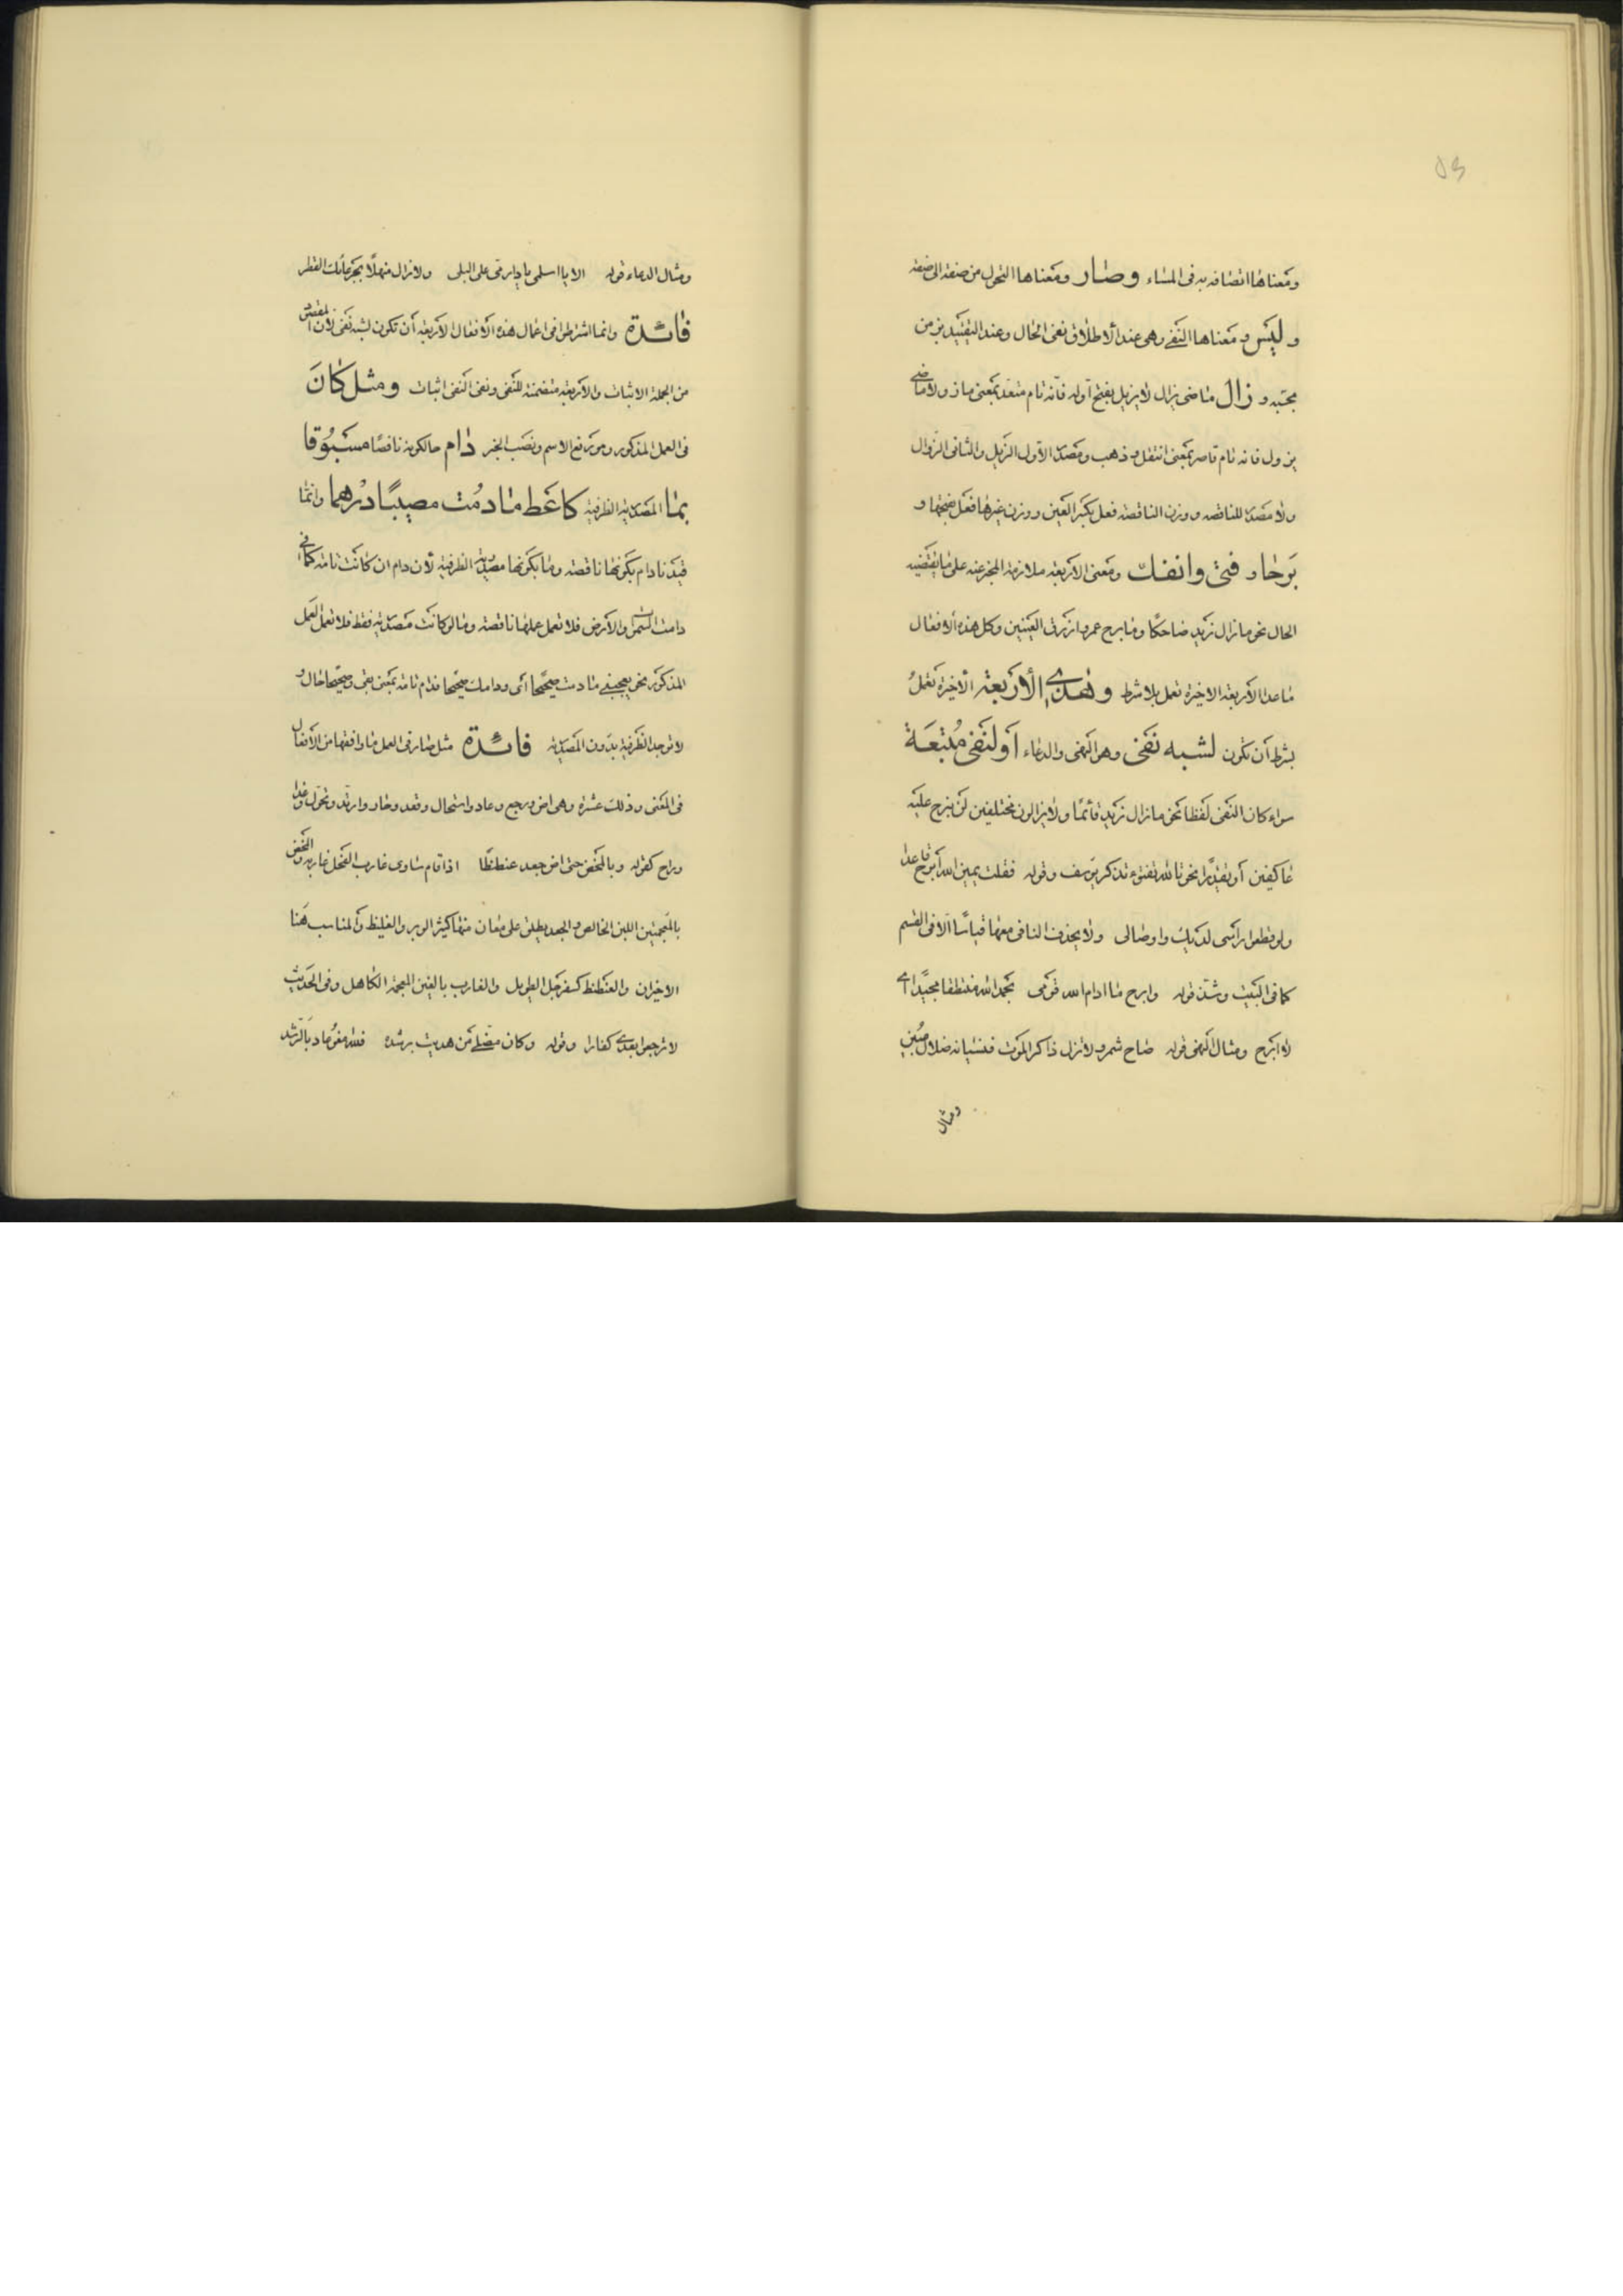 ٥٣
ومعناها اتصافه به في المساء وصار ومعناها التحول من صفة الى صفة
وليس ومعناها النفي وهي عند الاطلاق نفي الحال وعند التقييد بزمن
بحسبه وزال ماضي يزال لا يزيل بفتح اوله فانه تام متعد بمعنى ماز ولا ماضي
يزول فانه تام قاصر بمعنى انتقل وذهب ومصدر الاول الزيل والثاني الزوال
ولا مصدر للناقصة ووزن الناقصة فعل بكسر العين ووزن غيرها فعل بفتحها و
برحا وفتئ وانفك ومعنى الاربعة ملازمة المخبر عنه على ما يقتضيه
الحال نحو ما زال زيد ضاحكا وما برح عمرو ازرق العينين وكل هذه الافعال
ما عدا الاربعة الاخيرة تعمل بلا شرط وهذي الأربعة الاخيرة تعمل
بشرط أن تكون لشبه نفي وهو النهي والدعاء أو لنفي متبعة
سواء كان النفي لفظا نحو ما زال زيد قائما ولا يزالون مختلفين لن نبرح عليه
عاكفين أو تقديرا نحو تالله تفتؤ تذكر يوسف وقوله فقلت يمين الله أبرح قاعدا
ولو قطعوا رأسي لديك واوصالي ولا يحذف النافي معها قياسا الا في القسم
كما في البيت وشذ قوله وابرح ما ادام الله قومي بحمد الله منتطقا مجيدا اي
لا ابرح ومثال النهي قوله صاح شمر ولا تزل ذاكر الموت فنسيانه ضلال مبين
ومثال
ومثال الدعاء قوله الا يا اسلمي يا دار مي على البلى ولا زال منهلا بجرعائك القطر
فائدة وانما اشترط في اعمال هذه الافعال الاربعة أن تكون لشبه نفي لان المقصود
من الجملة الاثبات والاربعة متضمنة للنفي ونفي النفي اثبات ومثل كان
في العمل المذكور وهو رفع الاسم ونصب الخبر دام حالكونه ناقصا مسبوقا
بما المصدرية الظرفية كاعط ما دمت مصيبا درهما وانما
قيدنا دام بكونها ناقصة وما بكونها مصدرية الظرفية لأن دام ان كانت تامة كما في
دامت السموات والارض فلا تعمل عملها ناقصة وما لو كانت مصدرية فقط فلا تعمل العمل
المذكور نحو يعجبني ما دمت صحيحا أي دوامك صحيحا فدام تامة بمعنى بقي وصحيحا حال و
لا توجد الظرفية بدون المصدرية فائدة مثل صار في العمل ما وافقها من الأفعال
في المعنى وذلك عشرة وهي اض ورجع وعاد واستحال وقعد وحار وارتد وتحول وغدا
وراح كقوله وبالمخض حتى اض جعدا عنطنطا اذا قام ساوى غارب الفحل غاربه والمخض
بالمعجمتين اللبن الخالص والجعد يطلق على معان منها كثير الوبر والغليظ والمناسب هنا
الاخيران والعنطنط كسفرجل الطويل والغارب بالغين المعجمة الكاهل وفي الحديث
لا ترجعوا بعدي كفارا وقوله وكان مضلي من هديت برشده فلله مغو عاد بالرشد